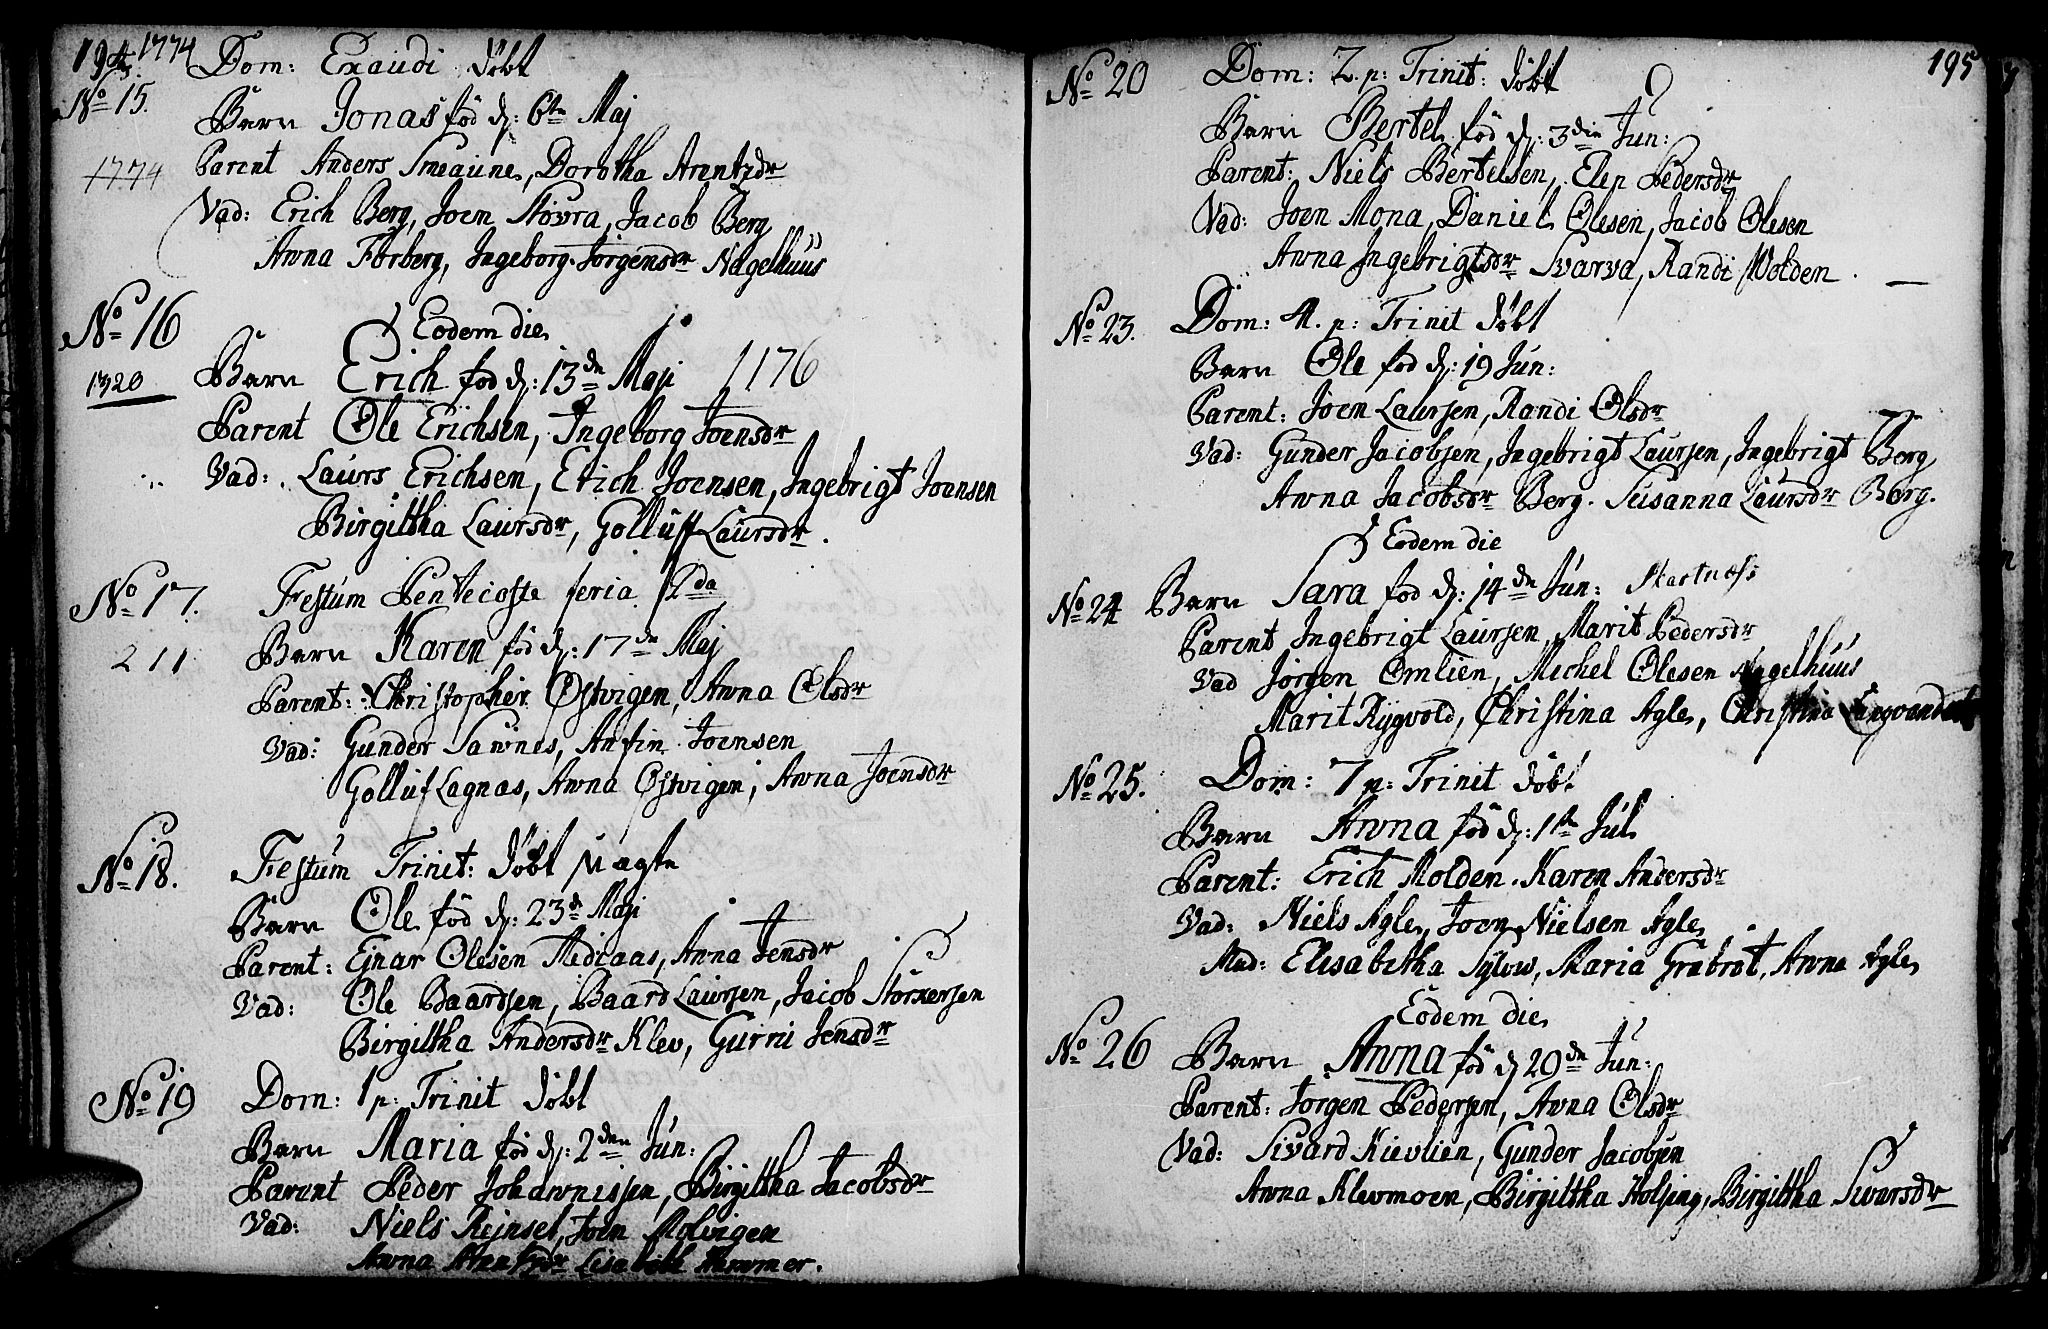 194. 1774 Dom: Exaudi döbt
No 15.
Barn Jonas föd d: 6te Maj
1774 Parent Anders Smeaune, Dorotha Arentzdr
Vad: Erich Berg, Joen Stövra, Jacob Berg
Anna Förberg, Ingeborg Jörgensdr Nagelhuus
No 16
Eodem die
1320 Barn Erich föd d: 13de Maji 1176
Parent Ole Erichsen, Ingeborg Joensdr
Vad: Laurs Erichsen, Erich Joensen, Ingebrigt Joensen
Birgittha Laursdr, Golluff Laursdr.
No 17. Festum Pentecoste feria 2da
211 Barn Karen föd d: 17de Maj
Parent: Christopher Östvigen, Anna Olsdr
Vad: Gunder Saxnes, Anfin Joensen
Golluf Lagnas, Anna Östvigen, Anna Joensdr
No 18. Festum Trinit: döbt
Barn Ole föd d: 23de Maji
Parent: Ejnar Olesen Midiaas, Anna Jensdr
Vad: Ole Baardsen, Baard Laursen, Jacob Störkersen
Birgittha Andersdr Klev, Gurru Jensdr
No 19 Dom: 1 p: Trinit döbt
Barn Maria föd d: 2den Jun:
Parent Peder Johannissen, Birgittha Jacobsdr
Vad: Niels Rejnsel, Joen Molvigen
Anna Arentzdr Lisabeth Hammer.
195
No 20 Dom: 2 p: Trinit: döbt
Barn Bertel föd d: 3die Jun:
Parent: Niels Bertelsen, Elen Pedersdr
Vad: Joen Mona, Daniel Olesen, Jacob Olesen
Anna Ingebrigtsdr Svarva, Randi Molden.
No 23. Dom: 4. p: Trinit döbt
Barn Ole föd d: 19 Jun:
Parent: Joen Laursen, Randi Olsdr
Vad: Gunder Jacobsen, Ingebrigt Laursen, Ingebrigt Berg
Anna Jacobsdr Berg. Susanna Laursdr Berg.
Eodem die
No 24 Barn Sara föd d: 14de Jun: Skartnæss
Parent Ingebrigt Laursen, Marit Pedersdr
Vad Jörgen Omlien, Michel Olesen Nagelhuus
Marit Rygvold, Christina Agle, Christina
No 25. Dom: 7 p: Trinit döbt
Barn Anna föd d: 1ste Jul
Parent: Erich Molden. Karen Andersdr
Vad: Niels Agle, Joen Nielsen Agle
Mad: Elisabetha Sylow, Maria Grabröt, Anna Agle
Eodem die
No 26 Barn Anna föd d 29de Jun:
Parent: Jörgen Pedersen, Anna Olsdr
Vad: Sivard Kievlien, Gunder Jacobsen
Anna Klevmoen, Birgittha Holsing, Birgittha Sivarsdr